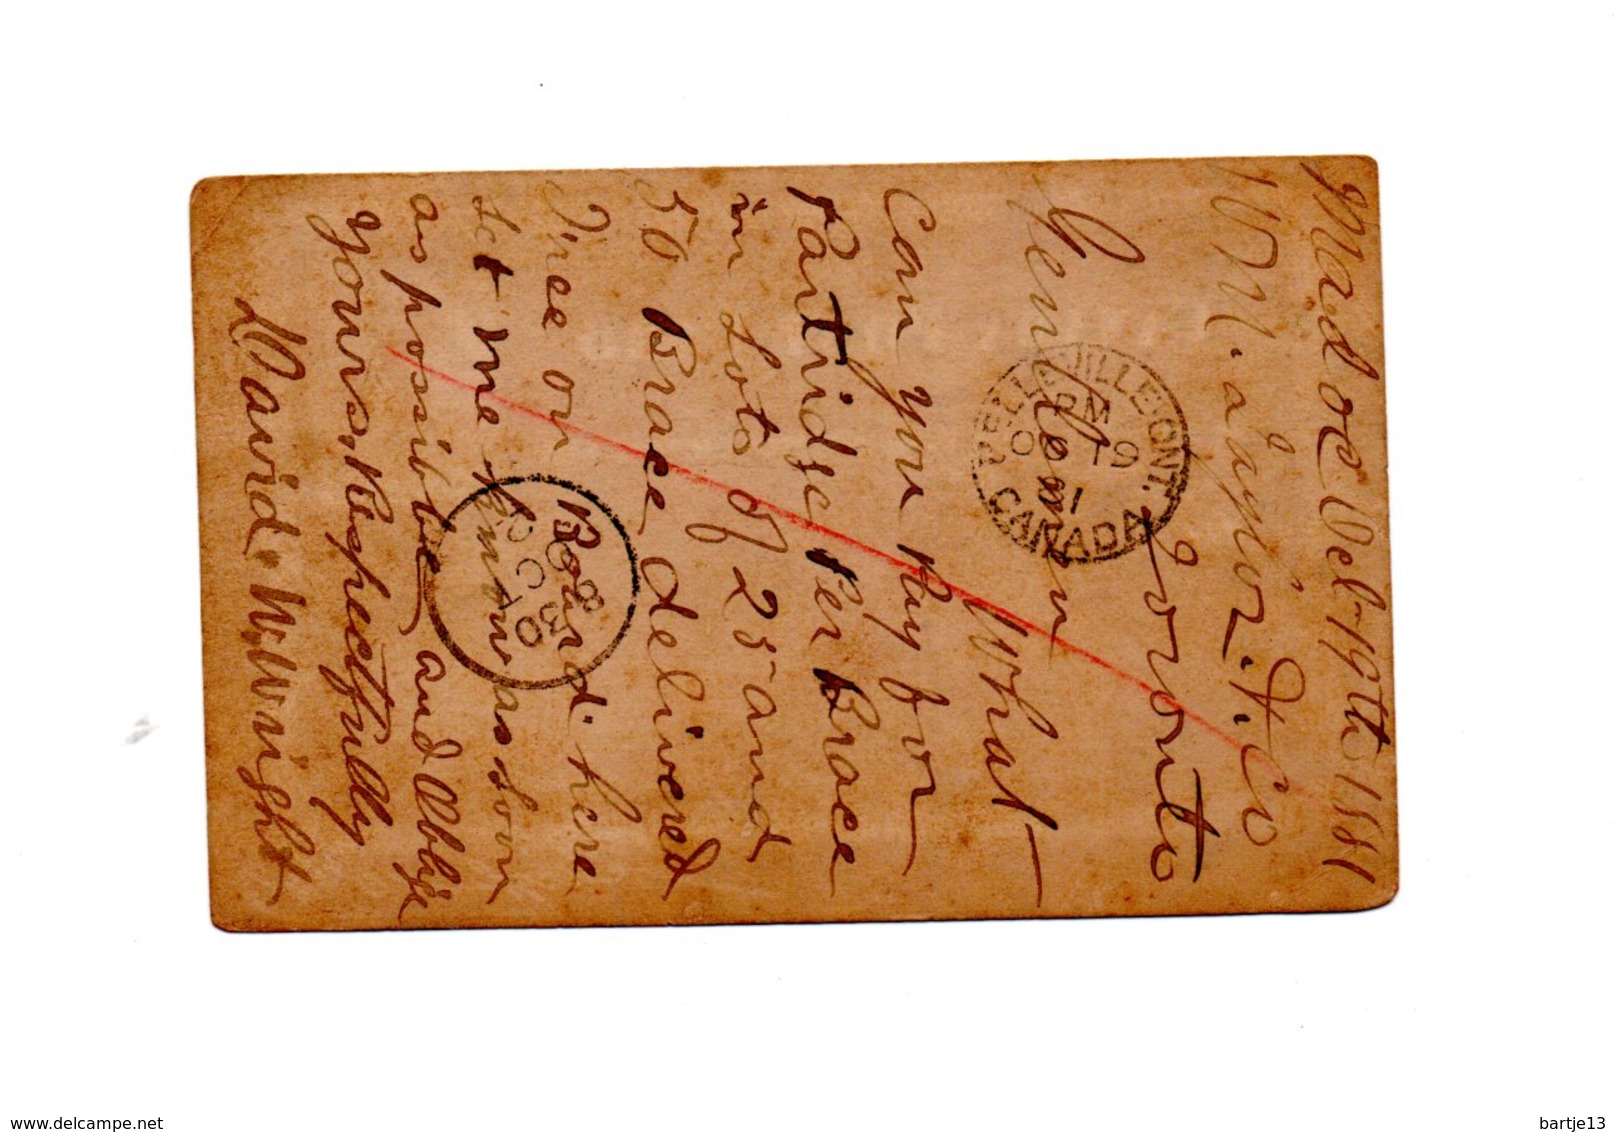 Madoc Oct 19th 1881
W. H. Taylor & Co
Toronto
Gentlemen
What
Can you Pay for
Partridge Per Brace
in Lots of 25 and
50 Brace delivered
Free on Board here
Let me know as soon
as possible and Oblige
Yours Respectfully
David W. Wright
BELLEVILLE ONT.
PM
OC 19
81
CANADA
8 30
OC
delcampe.net
bartje13